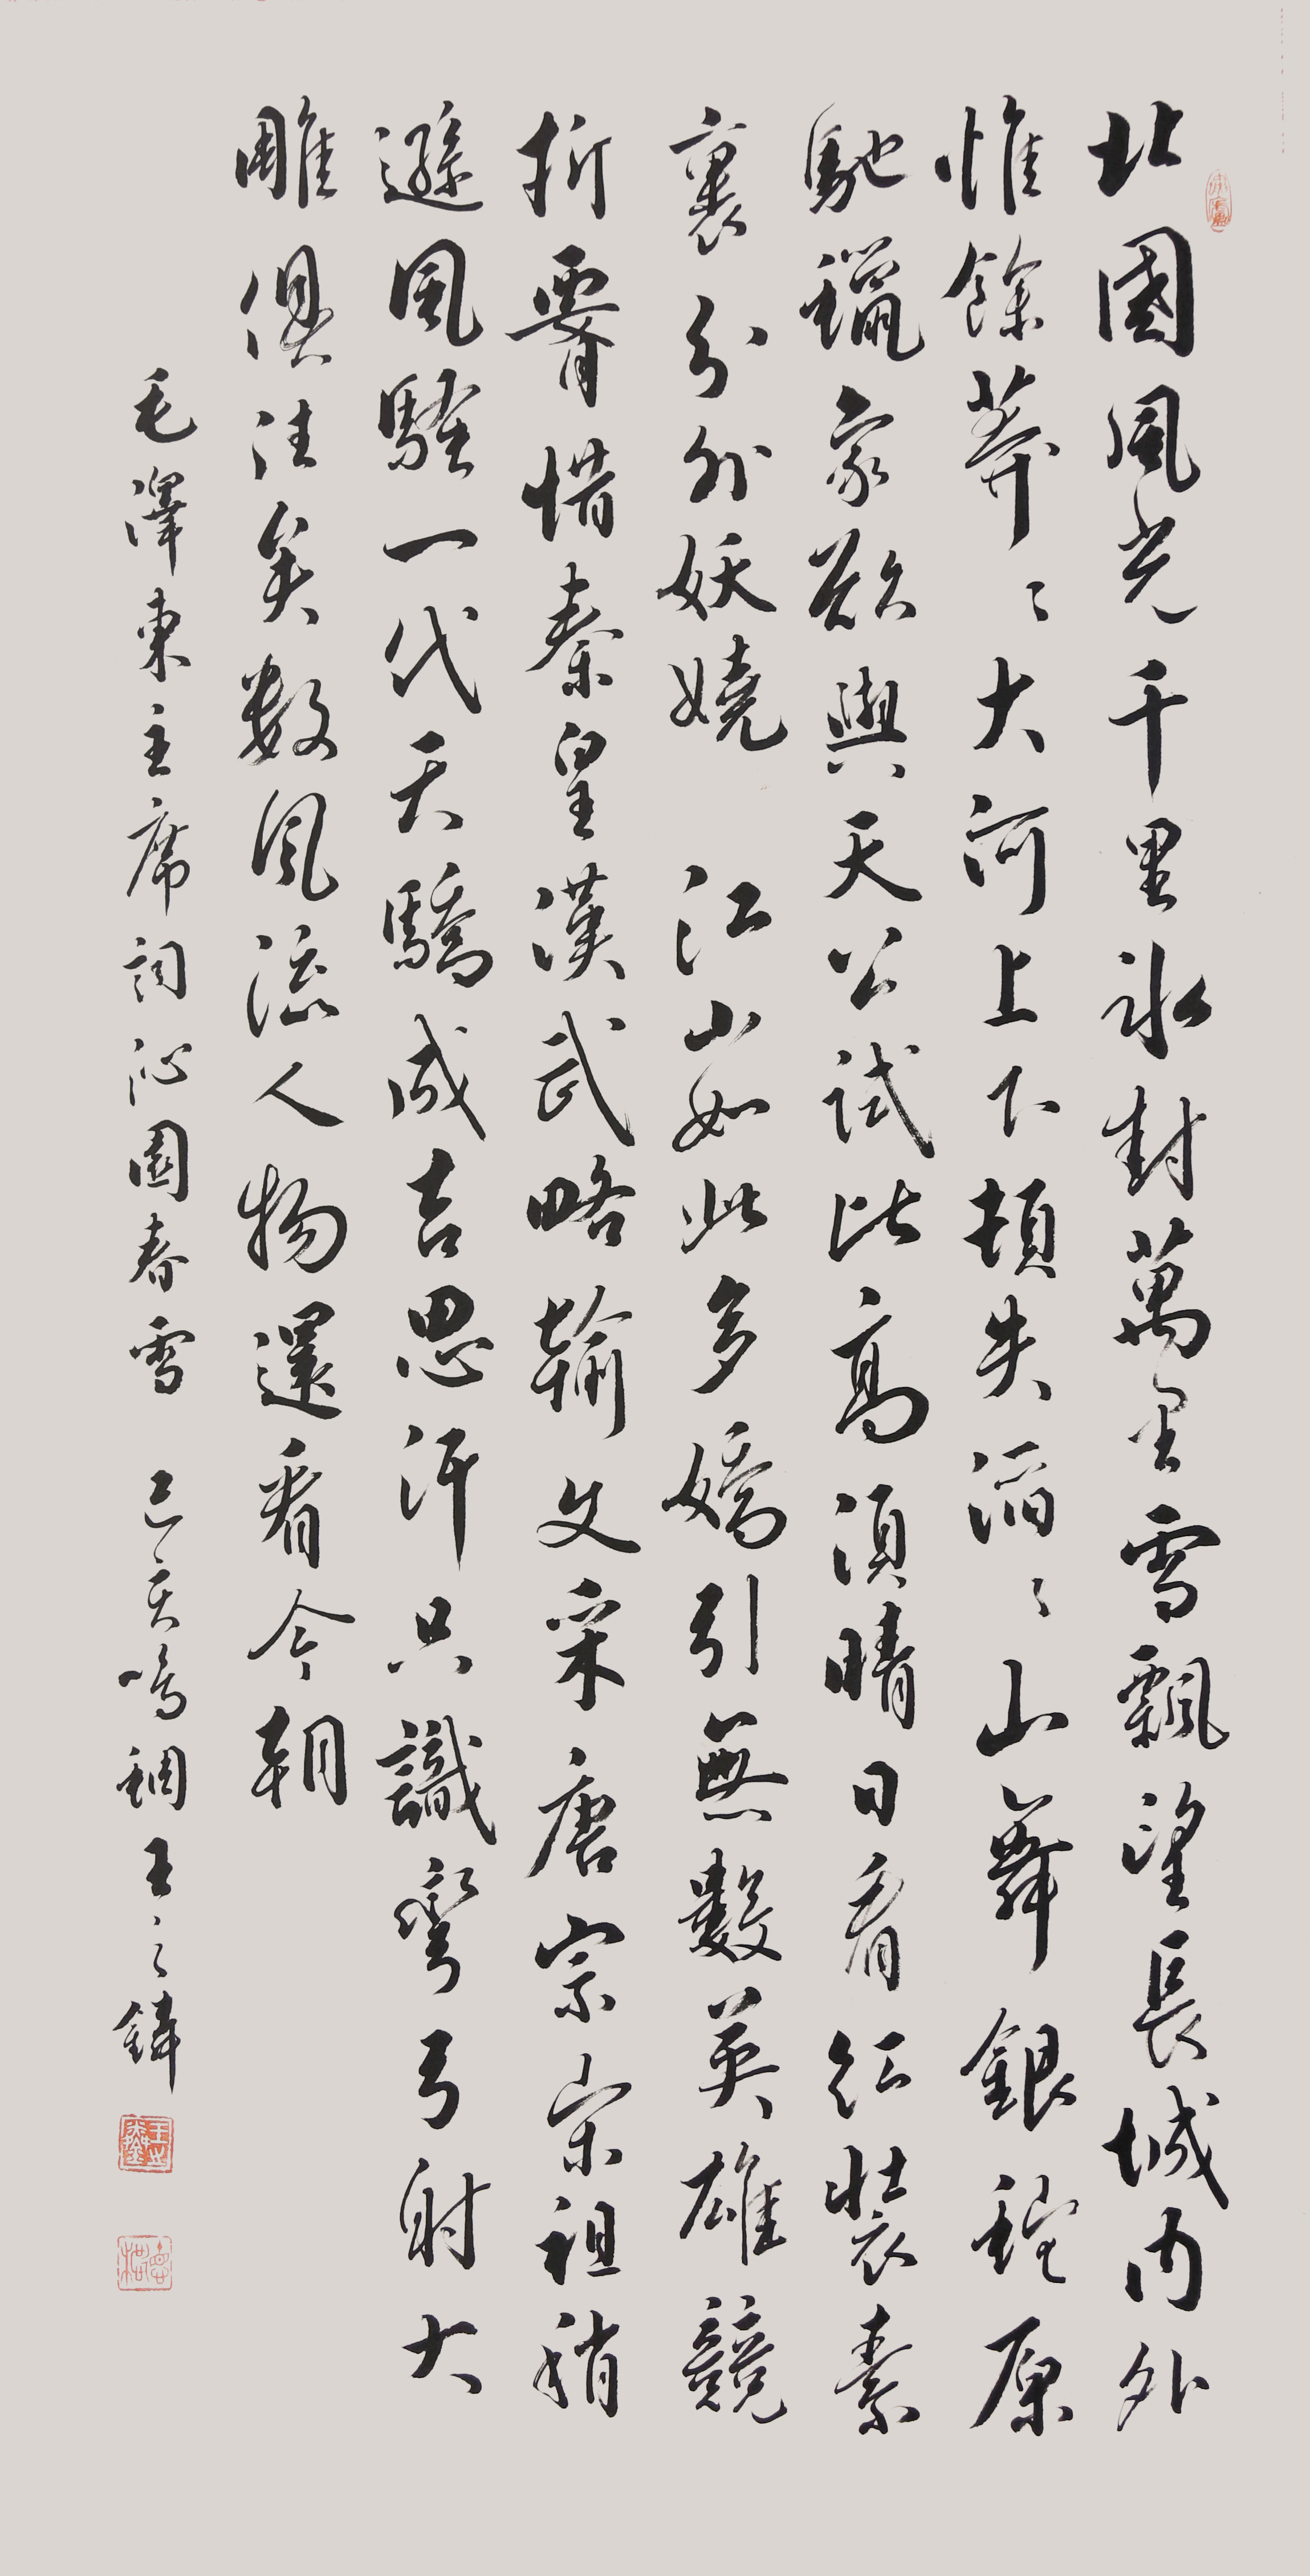 北國風光千里冰封萬里雪飄望長城内外
惟餘莽〻大河上下頓失滔〻山舞銀蛇原
馳蠟象欲與天公試比高須晴日看紅裝素
裹分外妖嬈 江山如此多嬌引無數英雄競
折腰惜秦皇漢武略輸文采唐宗宋祖稍
遜風騷一代天驕成吉思汗只識彎弓射大
雕俱往矣数風流人物還看今朝
毛澤東主席詞沁園春雪 己亥鳴蜩王之鏻